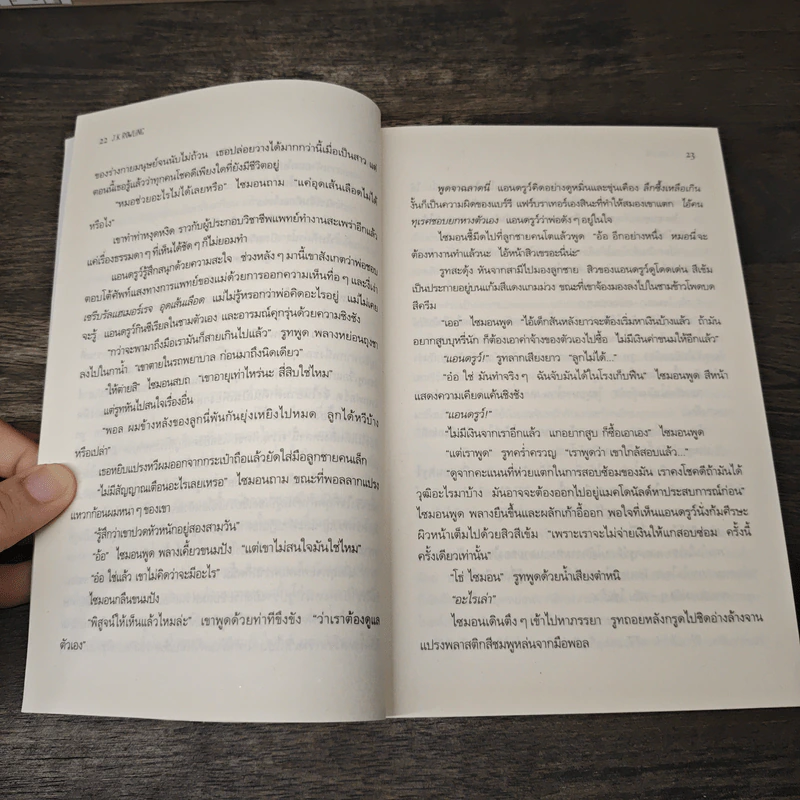 22 J.K. ROWLING
ของร่างกายมนุษย์จนนับไม่ถ้วน เธอปล่อยวางได้มากกว่านี้เมื่อเป็นสาว แต่
ตอนนี้เธอรู้แล้วว่าทุกคนโชคดีเพียงใดที่ยังมีชีวิตอยู่
"หมอช่วยอะไรไม่ได้เลยหรือ" ไซมอนถาม "แค่อุดเส้นเลือดไม่ได้
หรือไง"
เขาทำท่าหงุดหงิด ราวกับผู้ประกอบวิชาชีพแพทย์ทำงานสะเพร่าอีกแล้ว
แค่เรื่องธรรมดา ๆ ที่เห็นได้ชัด ๆ ก็ไม่ยอมทำ
แอนดรูว์รู้สึกสนุกด้วยความสะใจ ช่วงหลัง ๆ มานี้เขาสังเกตว่าพ่อชอบ
ตอบโต้ศัพท์แสงทางการแพทย์ของแม่ด้วยการออกความเห็นทื่อ ๆ และงี่เง่า
เซรีบรัลแฮมเมอร์เรจ อุดเส้นเลือด แม่ไม่รู้หรอกว่าพ่อคิดอะไรอยู่ แม่ไม่เคย
จะรู้ แอนดรูว์กินซีเรียลในชามตัวเอง และอารมณ์คุกรุ่นด้วยความชิงชัง
"กว่าจะพามาถึงมือเรามันก็สายเกินไปแล้ว" รูทพูด พลางหย่อนถุงชา
ลงไปในกาน้ำ "เขาตายในรถพยาบาล ก่อนมาถึงนิดเดียว"
"ให้ตายสิ" ไซมอนสบถ "เขาอายุเท่าไหร่นะ สี่สิบใช่ไหม"
แต่รูทหันไปสนใจเรื่องอื่น
"พอล ผมข้างหลังของลูกนี่พันกันยุ่งเหยิงไปหมด ลูกได้หวีบ้าง
หรือเปล่า"
เธอหยิบแปรงหวีผมออกจากกระเป๋าถือแล้วยัดใส่มือลูกชายคนเล็ก
"ไม่มีสัญญาณเตือนอะไรเลยเหรอ" ไซมอนถาม ขณะที่พอลลากแปรง
แหวกก้อนผมหนา ๆ ของเขา
"รู้สึกว่าเขาปวดหัวหนักอยู่สองสามวัน"
"อ้อ" ไซมอนพูด พลางเคี้ยวขนมปัง "แต่เขาไม่สนใจมันใช่ไหม"
"อ๋อ ใช่แล้ว เขาไม่คิดว่าจะมีอะไร"
ไซมอนกลืนขนมปัง
"พิสูจน์ให้เห็นแล้วไหมล่ะ" เขาพูดด้วยท่าทีขึงขัง "ว่าเราต้องดูแล
ตัวเอง"
23
พูดจาฉลาดนี่ แอนดรูว์คิดอย่างดูหมิ่นและขุ่นเคือง ลึกซึ้งเหลือเกิน
งั้นก็เป็นความผิดของแบร์รี แฟร์บราเทอร์เองสินะที่ทำให้สมองเขาแตก ไอ้คน
ทุเรศชอบยกหางตัวเอง แอนดรูว์ว่าพ่อดัง ๆ อยู่ในใจ
ไซมอนชี้มีดไปที่ลูกชายคนโตแล้วพูด "อ้อ อีกอย่างหนึ่ง หมอนี่จะ
ต้องหางานทำแล้วนะ ไอ้หน้าสิวเขรอะนี่น่ะ"
รูทสะดุ้ง หันจากสามีไปมองลูกชาย สิวของแอนดรูว์ดูโดดเด่น สีเข้ม
เป็นประกายอยู่บนแก้มสีแดงแกมม่วง ขณะที่เขาจ้องมองลงไปในชามข้าวโพดบด
สีครีม
"เออ" ไซมอนพูด "ไอ้เด็กสันหลังยาวจะต้องเริ่มหาเงินบ้างแล้ว ถ้ามัน
อยากสูบบุหรี่นัก ก็ต้องเอาค่าจ้างของตัวเองไปซื้อ ไม่มีเงินค่าขนมให้อีกแล้ว"
"แอนดรูว์!" รูทลากเสียงยาว "ลูกไม่ได้..."
"อ๋อ ใช่ มันทำจริง ๆ ฉันจับมันได้ในโรงเก็บฟืน" ไซมอนพูด สีหน้า
แสดงความเคียดแค้นชิงชัง
"แอนดรูว์!"
"ไม่มีเงินจากเราอีกแล้ว แกอยากสูบ ก็ซื้อเอาเอง" ไซมอนพูด
"แต่เราพูด" รูทคร่ำครวญ "เราพูดว่า เขาใกล้สอบแล้ว..."
"ดูจากคะแนนที่ห่วยแตกในการสอบซ้อมของมัน เราคงโชคดีถ้ามันได้
วุฒิอะไรมาบ้าง มันอาจจะต้องออกไปอยู่แมคโดนัลด์หาประสบการณ์ก่อน"
ไซมอนพูด พลางยืนขึ้นและผลักเก้าอี้ออก พอใจที่เห็นแอนดรูว์นั่งก้มศีรษะ
ผิวหน้าเต็มไปด้วยสิวสีเข้ม "เพราะเราจะไม่จ่ายเงินให้แกสอบซ่อม ครั้งนี้
ครั้งเดียวเท่านั้น"
"โธ่ ไซมอน" รูทพูดด้วยน้ำเสียงตำหนิ
"อะไรเล่า"
ไซมอนเดินตึง ๆ เข้าไปหาภรรยา รูทถอยหลังกรูดไปชิดอ่างล้างจาน
แปรงพลาสติกสีชมพูหล่นจากมือพอล